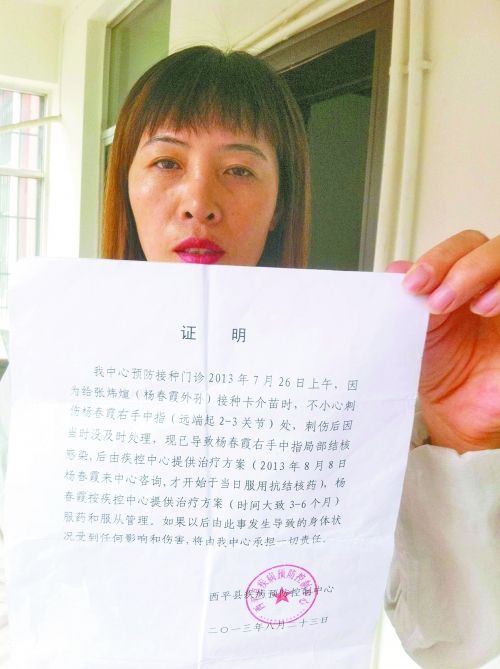 证 明
我中心预防接种门诊2013年7月26日上午，因
为给张炜煊（杨春霞外孙）接种卡介苗时，不小心刺
伤杨春霞右手中指（远端起2-3关节）处，刺伤后因
当时没及时处理，现已导致杨春霞右手中指局部结核
感染，后由疾控中心提供治疗方案（2013年8月8日
杨春霞来中心咨询，才开始于当日服用抗结核药），杨
春霞按疾控中心提供治疗方案（时间大致3-6个月）
服药和服从管理。如果以后由此事发生导致的身体状
况受到任何影响和伤害，将由我中心承担一切责任。
西平县疾病预防控制中心
二〇一三年八月二十三日
西平县疾病预防控制中心